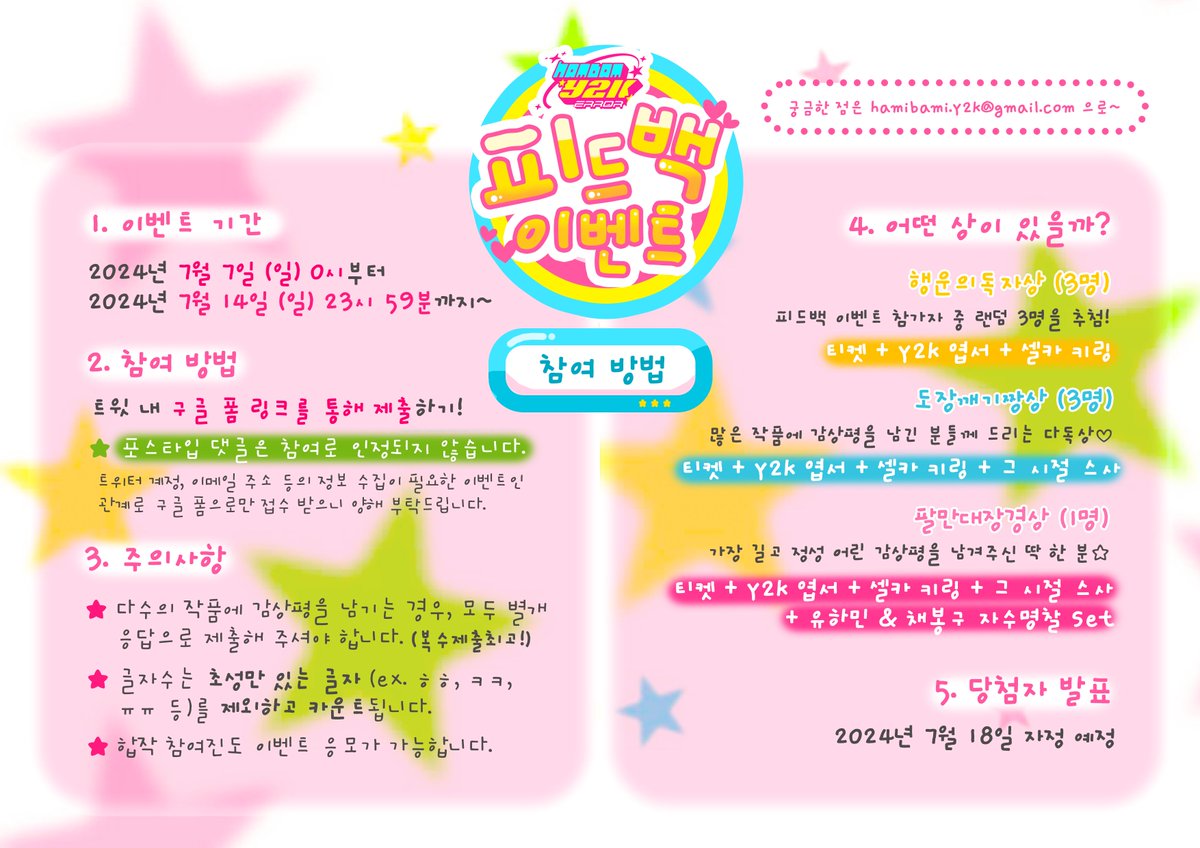 HAMBAM
Y2K
ERROR
피드백
이벤트
참여 방법
궁금한 점은 hamibami.y2k@gmail.com 으로~
1. 이벤트 기간
2024년 7월 7일 (일) 0시부터
2024년 7월 14일 (일) 23시 59분까지~
2. 참여 방법
트윗 내 구글 폼 링크를 통해 제출하기!
포스타입 댓글은 참여로 인정되지 않습니다.
트위터 계정, 이메일 주소 등의 정보 수집이 필요한 이벤트인
관계로 구글 폼으로만 접수 받으니 양해 부탁드립니다.
3. 주의사항
다수의 작품에 감상평을 남기는 경우, 모두 별개
응답으로 제출해 주셔야 합니다. (복수제출최고!)
글자수는 초성만 있는 글자 (ex. ㅎㅎ, ㅋㅋ,
ㅠㅠ 등)를 제외하고 카운트됩니다.
합작 참여진도 이벤트 응모가 가능합니다.
4. 어떤 상이 있을까?
행운의독자상 (3명)
피드백 이벤트 참가자 중 랜덤 3명을 추첨!
티켓 + Y2k 엽서 + 셀카 키링
도장깨기짱상 (3명)
많은 작품에 감상평을 남긴 분들께 드리는 다독상♡
티켓 + Y2k 엽서 + 셀카 키링 + 그 시절 스사
팔만대장경상 (1명)
가장 길고 정성 어린 감상평을 남겨주신 딱 한 분☆
티켓 + Y2k 엽서 + 셀카 키링 + 그 시절 스사
+ 유하민 & 채봉구 자수명찰 Set
5. 당첨자 발표
2024년 7월 18일 자정 예정